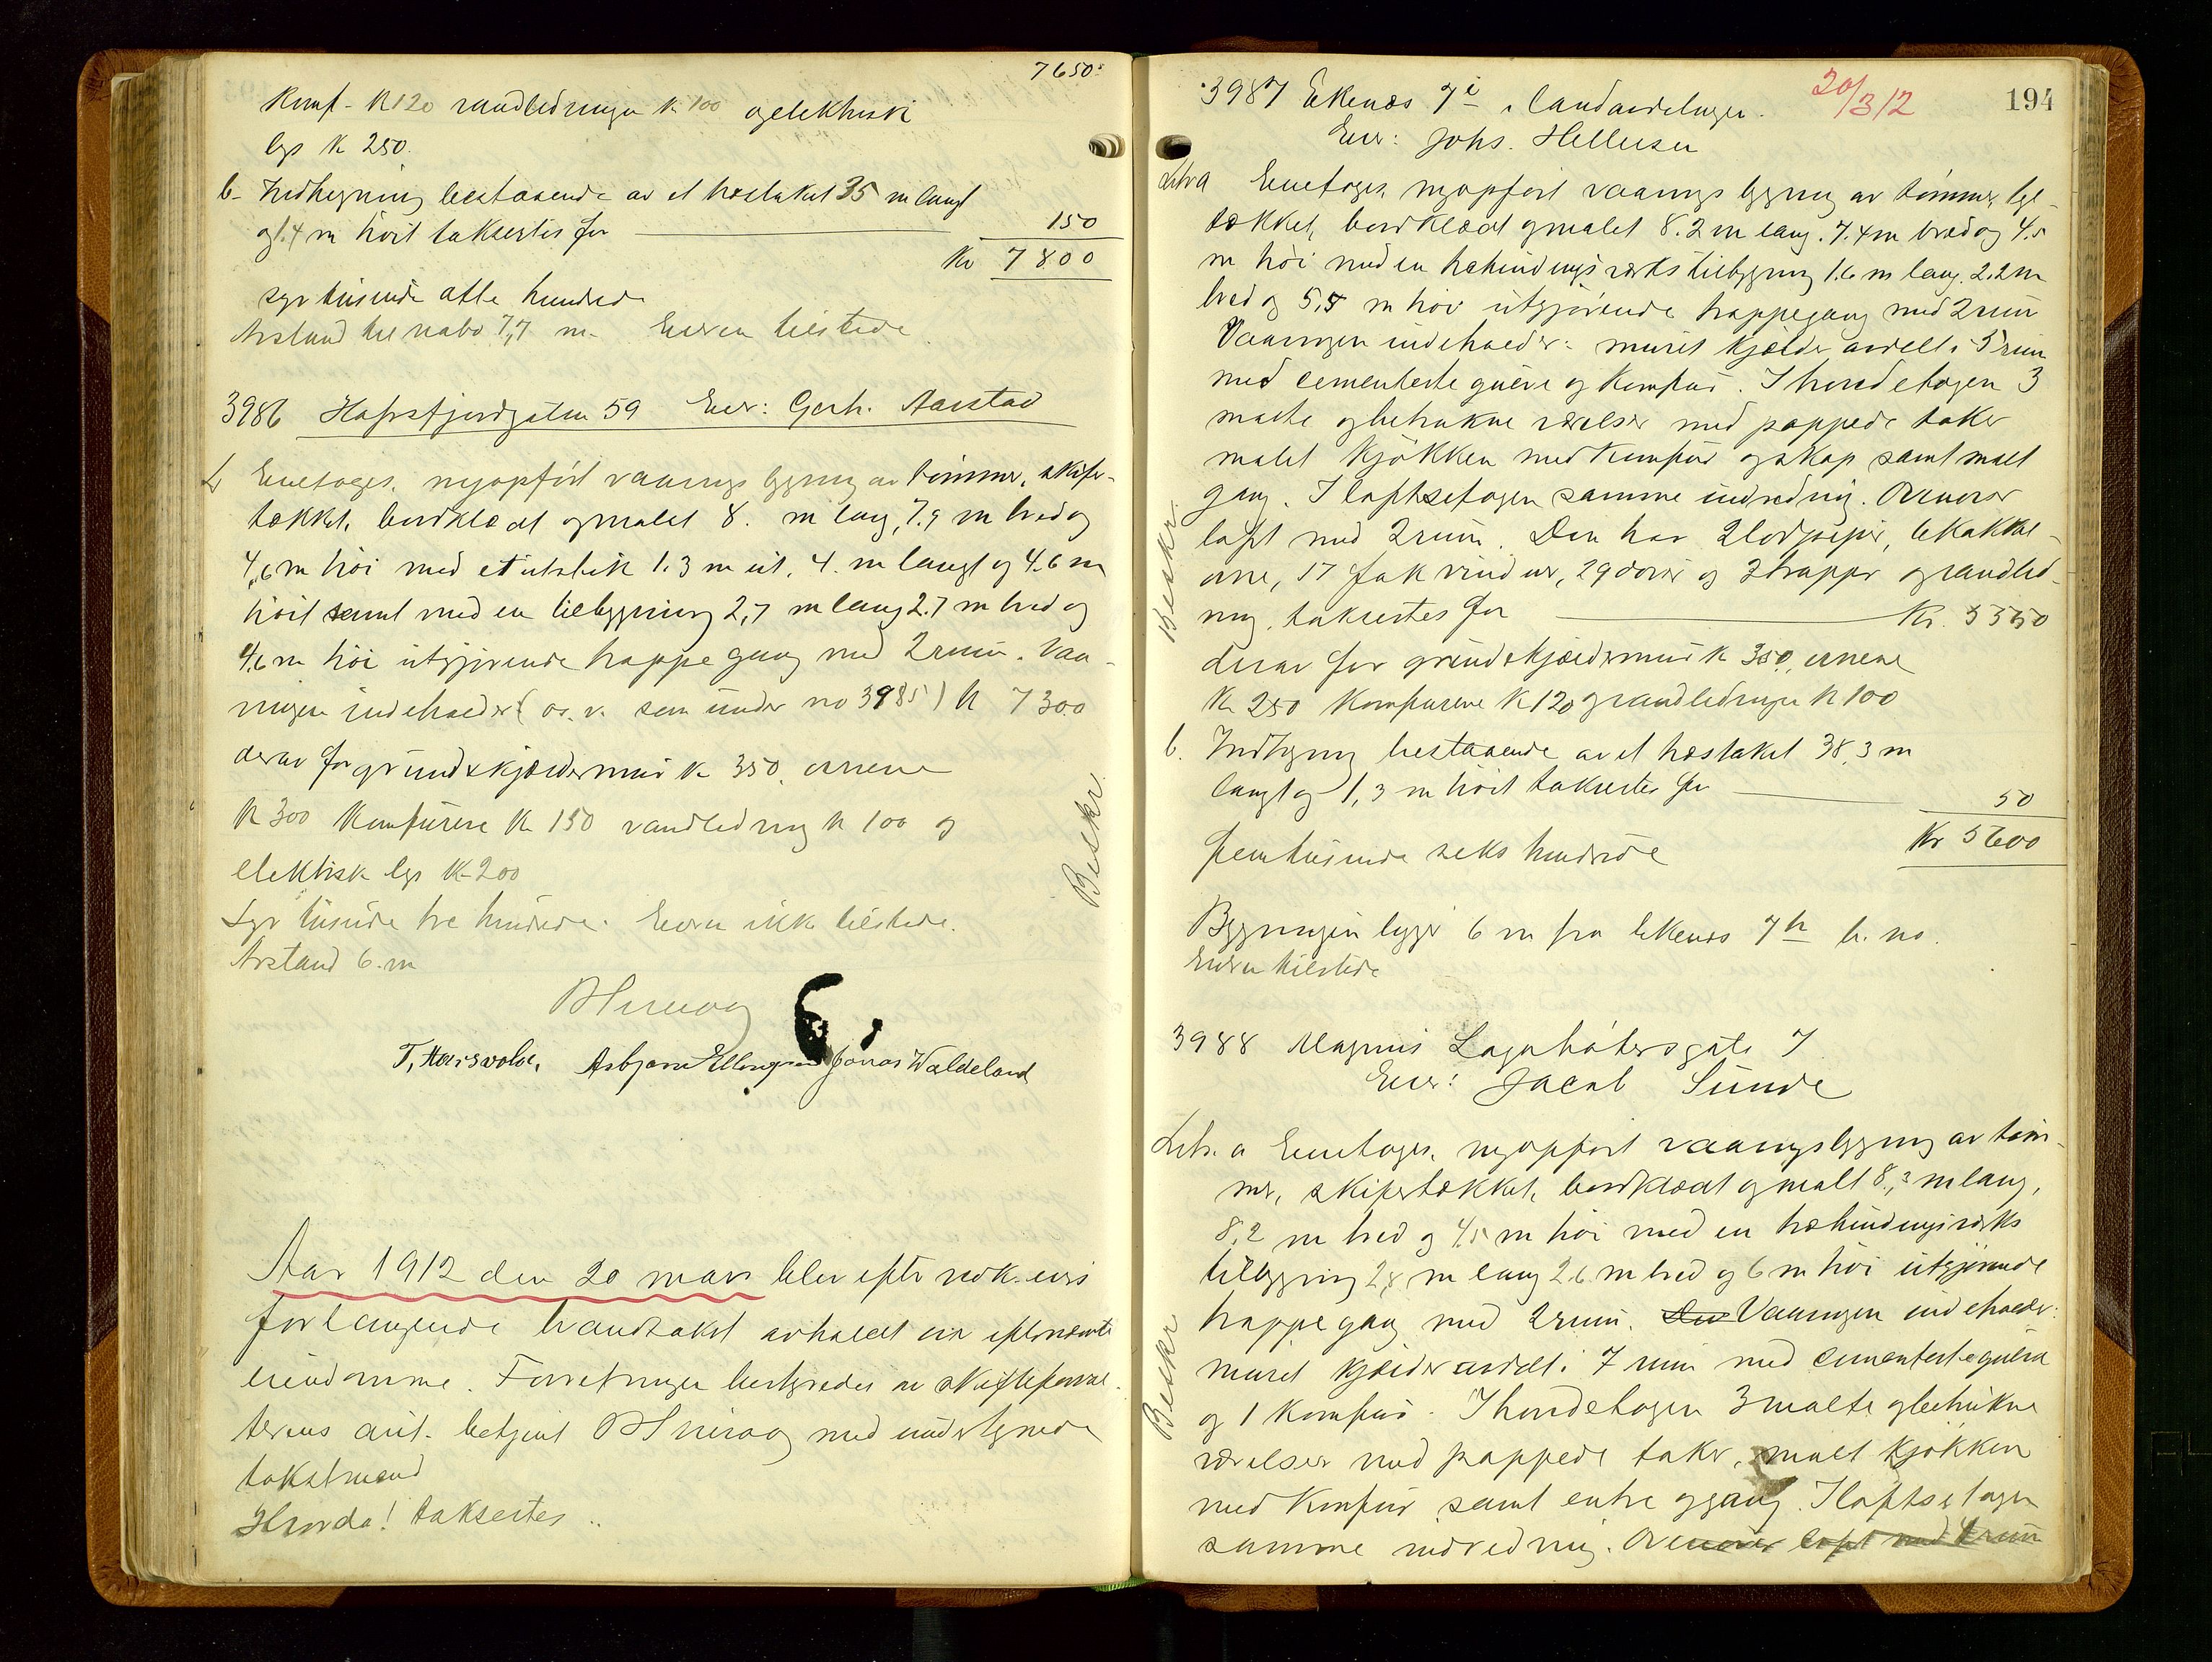 7650.
Komf. K 120 vandledningen K 100 og elektrisk
lys K 250.
b. Indhegning bestaaende av et træstaket 35 m langt
og 1.4 m høit takseres for 150
Kr 7800
syv tusinde otte hundrede
Avstand til nabo 7,7 m. Eieren tilstede.
3986 Hafrsfjordgaten 59 Eier: Gerh. Aarstad
Enetages, nyopført vaaningsbygning av tømmer, skifer-
tækket, bordklædt og malet 8. m lang, 7.9 m bred og
4,6 m høi med et utstik 1.3 m ut, 4. m langt og 4.6 m
høit samt med en tilbygning 2,7 m lang 2.7 m bred og
4,6 m høi utgjørende trappegang med 2 rum. Vaa-
ningen indeholder (o.s.v. som under no 3985) K 7300
derav for grund & kjældermur K 350, ovnene
K 300 Komfurene K 150 vandledning K 100 og
elektrisk lys K 200
Syv tusinde tre hundrede. Eieren ikke tilstede.
Avstand 6. m
Beskr.
T. Hausvolde. Asbjørn Ellingsen Jonas Waldeland
Aar 1912 den 20 mars blev efter vedk. eiers
forlangende brandtakst avholdt over efternævnte
eiendomme. Forretningen bestyredes av skifteforval-
terens aut. betjent med undertegnede
takstmænd
Hvorda! taksertes..
3987 Ekenæs 7de i Landavdelingen. 20/3 12 194
Eier: Johs. Helliesen
Litra Enetages, nyopført vaaningsbygning av tømmer, tegl-
tækket, bordklædt og malet 8.2 m lang. 7.4 m bred og 4.5
m høi med en træbindingsverks tilbygning 1.6 m lang. 2.2 m
bred og 5,5 m høi utgjørende trappegang med 2 rum
Vaaningen indeholder: muret kjælder avdelt i 5 rum
med cementerte gulve og komfur. I hovedetagen 3
malte og betrukne værelser med pappede taker
malet kjøkken med komfur og skap samt malt
gang. I loftsetagen samme indredning. Ovenover
loft med 2 rum. Den har 2 lodpiper, 6 kakkel-
ovne, 17 fak vinduer, 29 dører og 3 trapper og vandled-
ning, takseres for Kr. 5550
derav for grund & kjældermur K 350, ovnene
K 250 komfurene K 120 og vandledningen K 100
b. Indhegning bestaaende av et træstaket 38,3 m
langt og 1,3 m høit takseres for 50
Kr 5600
femtusinde seks hundrede
Bygningen ligger 6 m fra Ekenæs 7de b. no.
Eieren tilstede
Beskr.
3988 Magnus Lagabøtersgate 7
Eier: Jacob Sunde
Litr. a Enetages, nyopført vaaningsbygning av tøm-
mer, skifertækket, bordklædt og malt 8,3 m lang,
8,2 m bred og 4,5 m høi med en træbindingsverks
tilbygning 2,8 m lang 2,6 m bred og 6 m høi utgjørende
trappegang med 2 rum. Den Vaaningen indeholder:
muret kjælder avdelt i 7 rum med cementerte gulve
og 1 komfur. I hovedetagen 3 malte og betrukne
værelser med pappede taker, malt kjøkken
med komfur samt entre og gang. I loftsetagen
samme indredning. Ovenover loft med 4 rum
Beskr